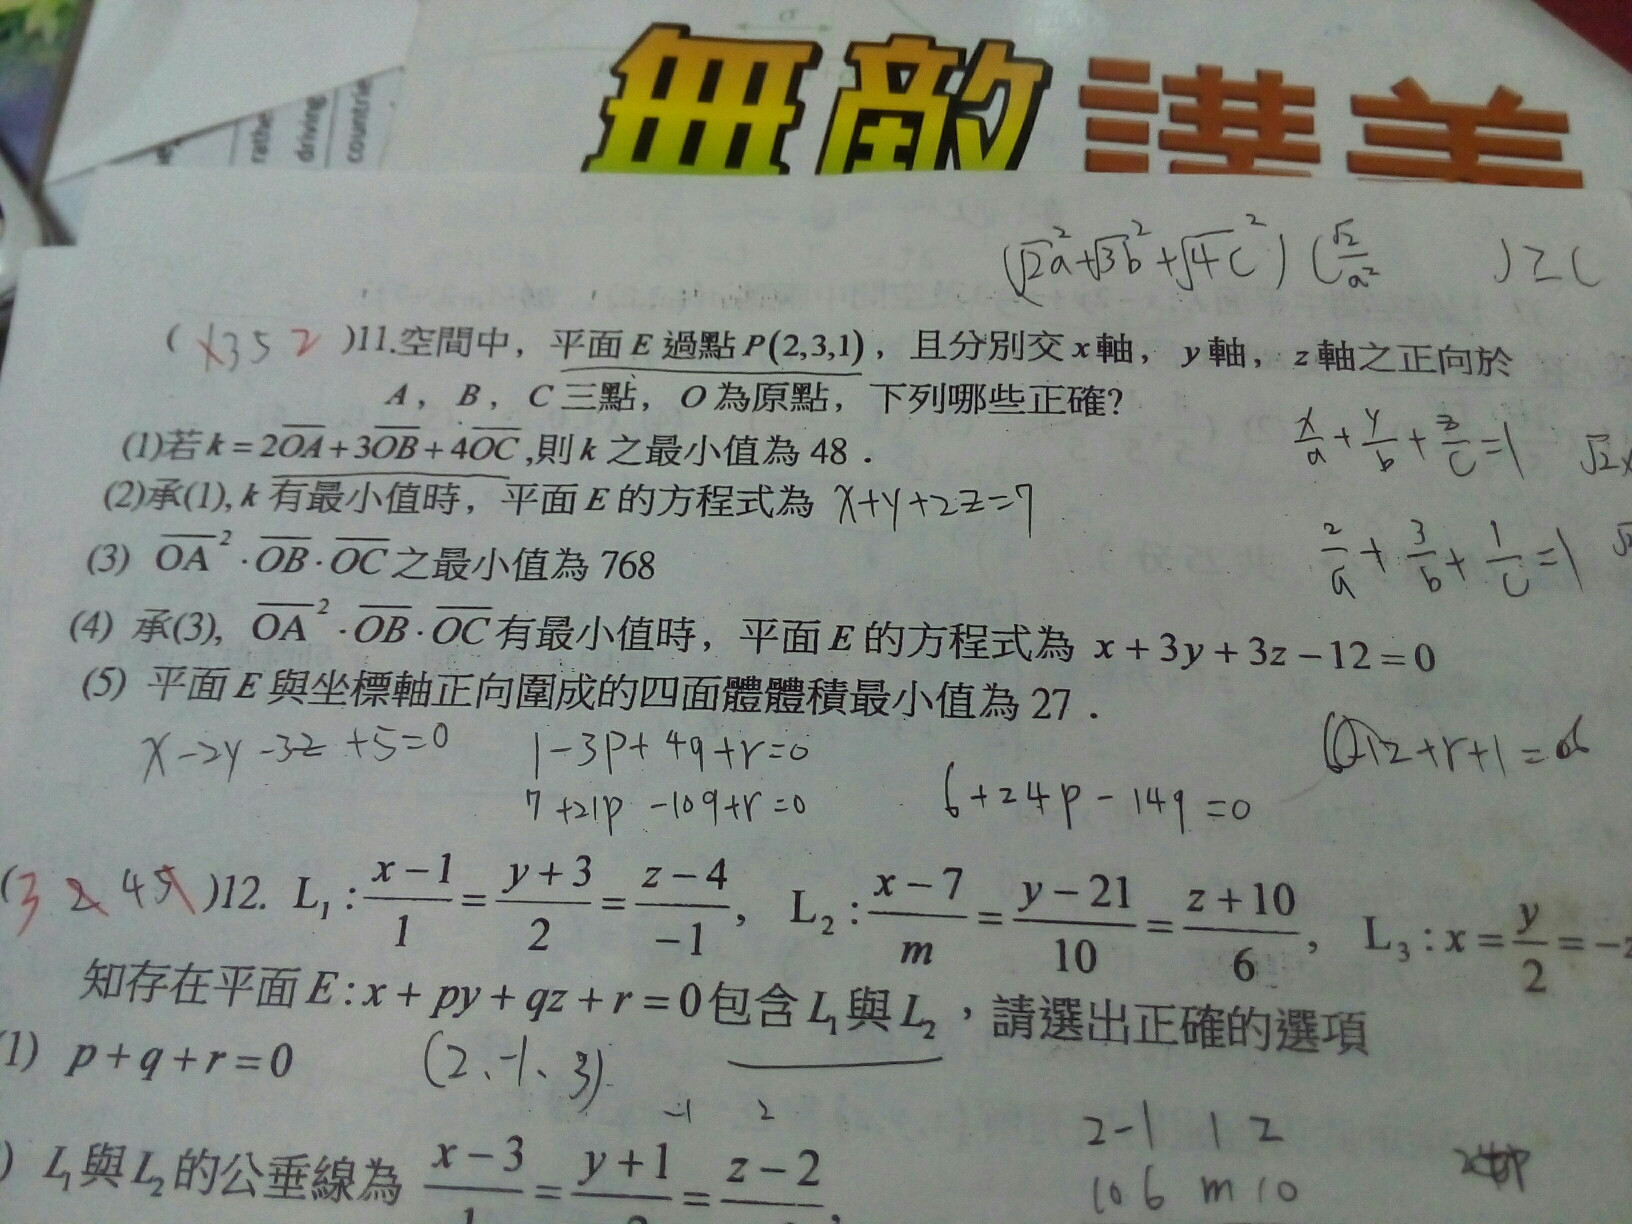 rathe
driving
countrie
σ
無敵講義
(√2a²+√3b²+√4c²)(√2/a² )≥(
(X352)11.空間中，平面E過點P(2,3,1)，且分別交x軸，y軸，z軸之正向於
A，B，C三點，O為原點，下列哪些正確?
x/a+y/b+z/c=1
(1)若k=2OA+3OB+4OC,則k之最小值為48．
(2)承(1),k有最小值時，平面E的方程式為 x+y+2z=7
2/a+3/b+1/c=1
(3) OA²·OB·OC之最小值為768
(4) 承(3), OA²·OB·OC有最小值時，平面E的方程式為 x+3y+3z−12=0
(5) 平面E與坐標軸正向圍成的四面體體積最小值為27．
x-2y-3z+5=0 1-3p+4q+r=0
7+21p-10q+r=0 6+24p-14q=0
12+r+1=
(3 2 4 5)12. L₁:(x−1)/1=(y+3)/2=(z−4)/−1, L₂:(x−7)/m=(y−21)/10=(z+10)/6, L₃:x=y/2=−z
知存在平面E:x+py+qz+r=0包含L₁與L₂，請選出正確的選項
1) p+q+r=0 (2、-1、3)
-1 2
2-1 1 2
) L₁與L₂的公垂線為 (x−3)/1=(y+1)/=(z−2)/,
10 6 m 10